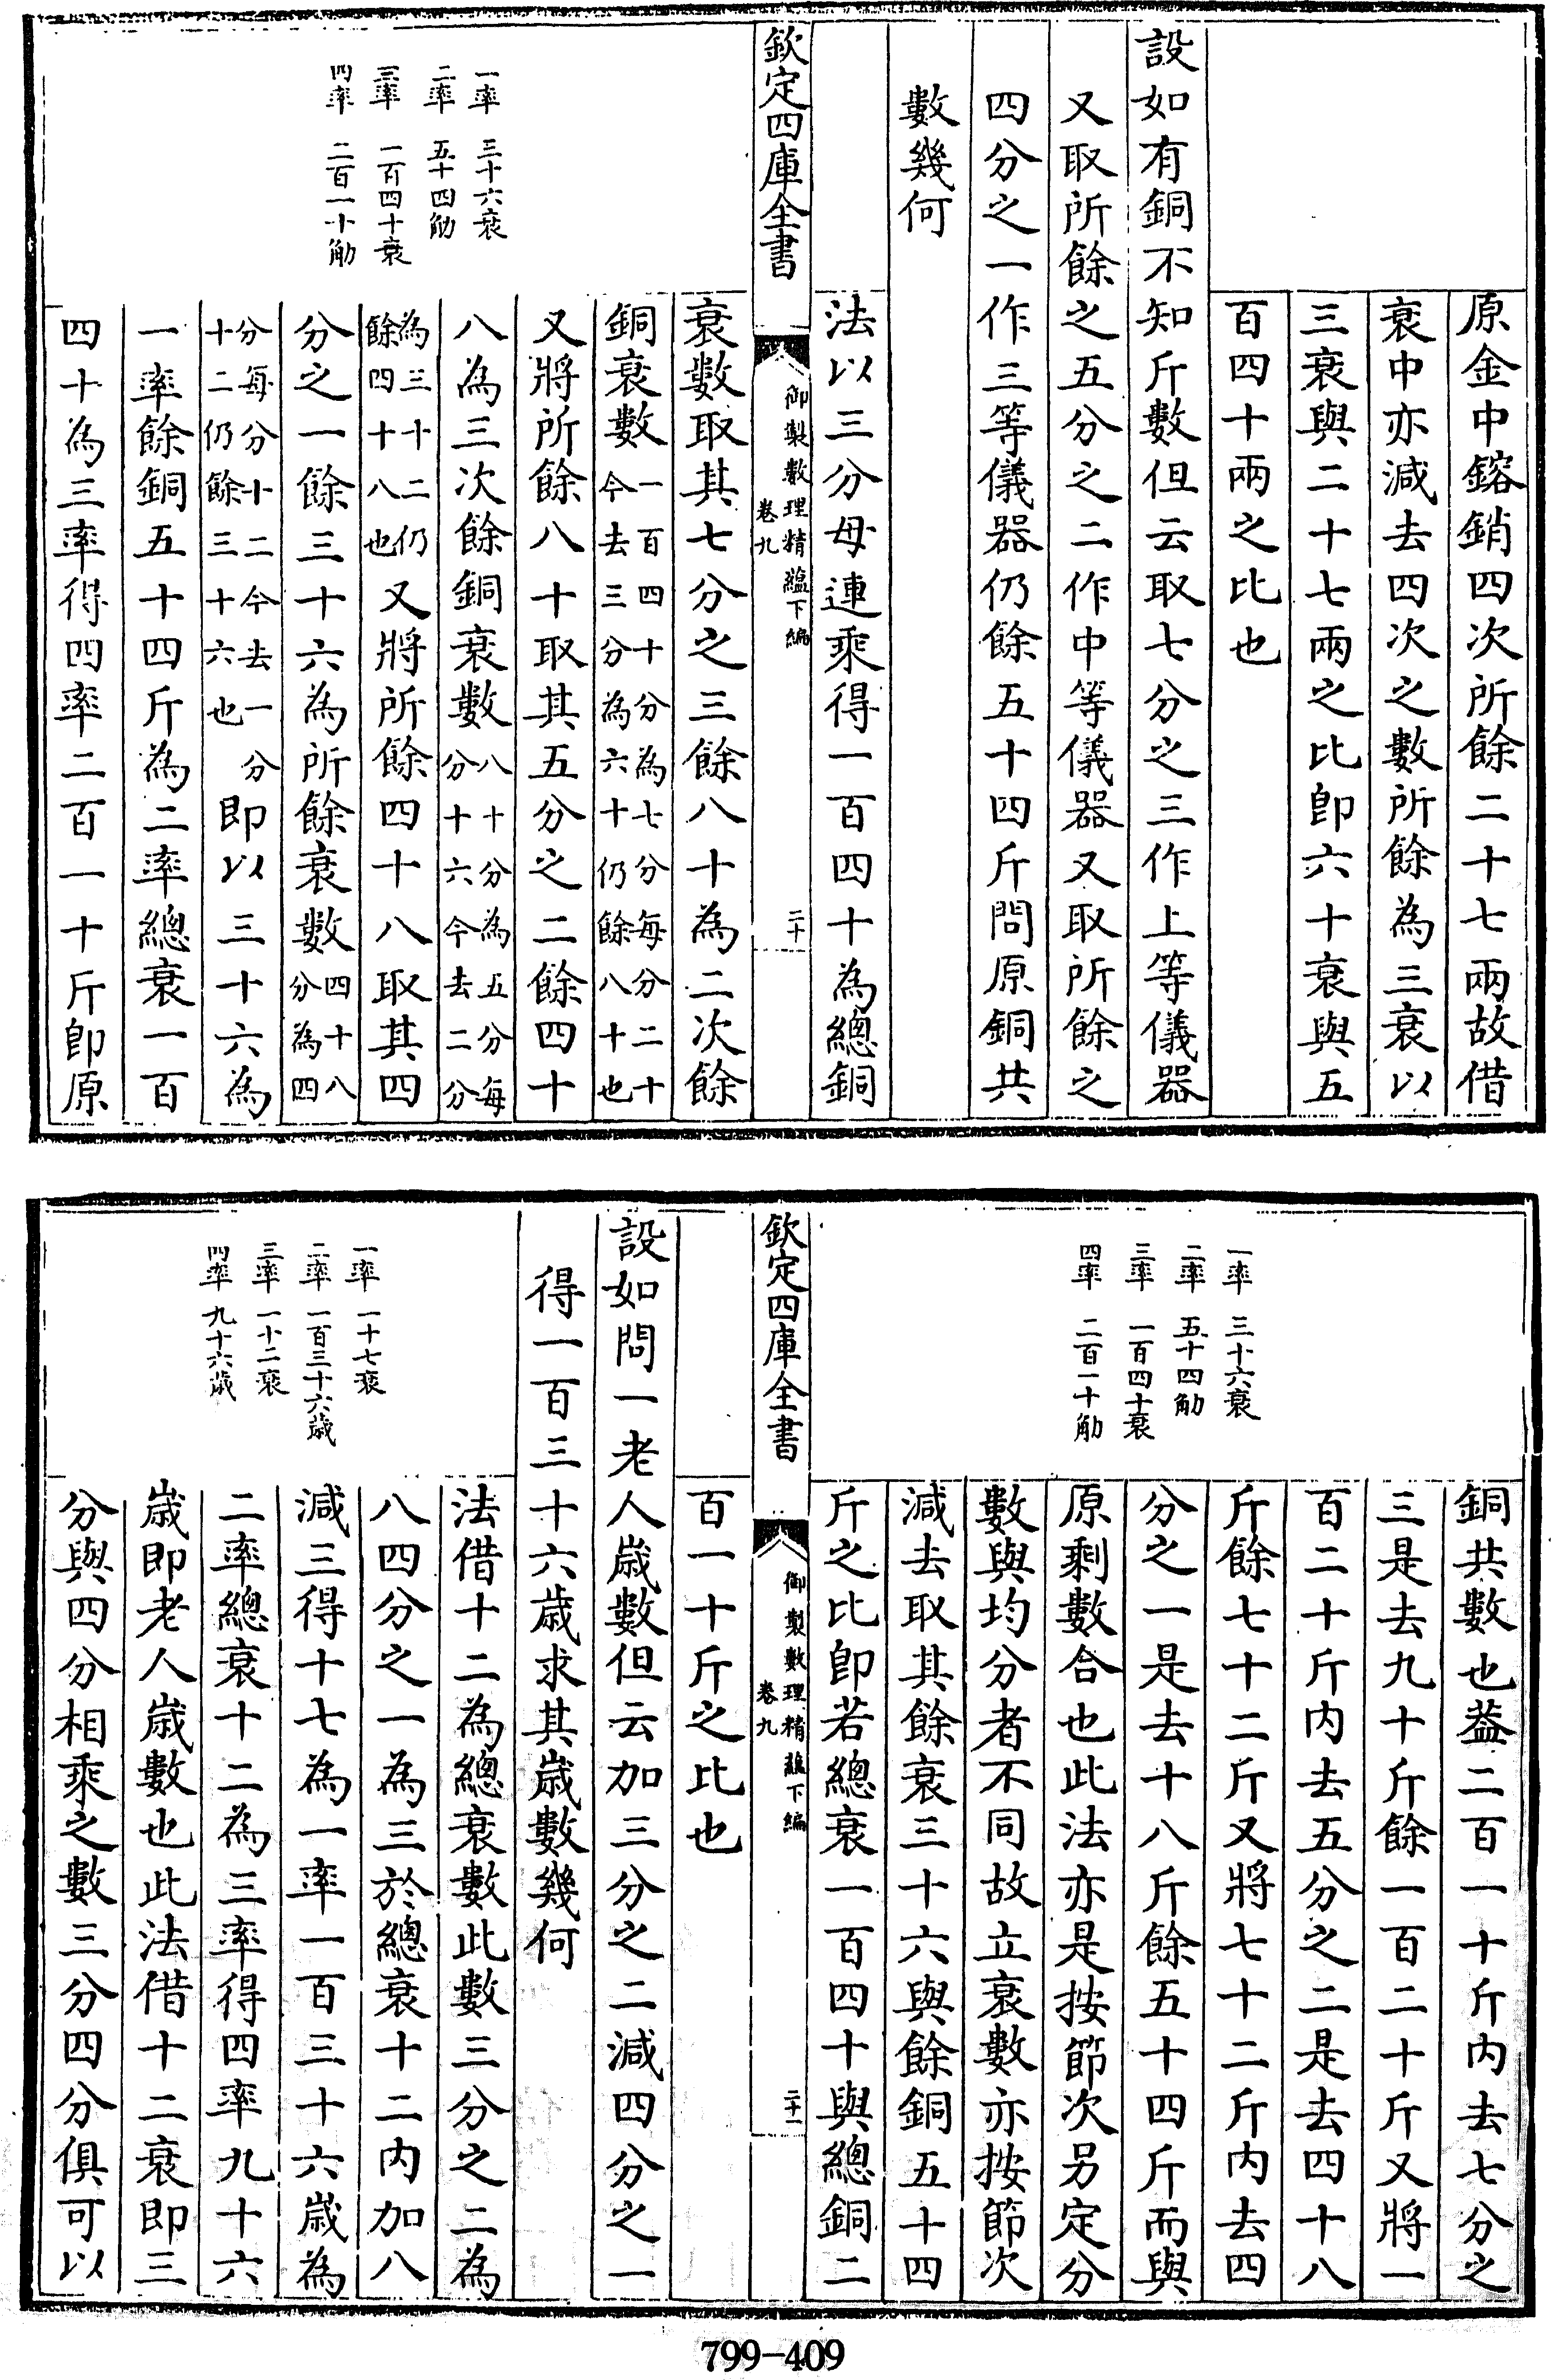 原金中鎔銷四次所餘二十七兩故借
衰中亦減去四次之數所餘為三衰以
三衰與二十七兩之比即六十衰與五
百四十兩之比也
設如有銅不知斤數但云取七分之三作上等儀器
又取所餘之五分之二作中等儀器又取所餘之
四分之一作三等儀器仍餘五十四斤問原銅共
數幾何
法以三分母連乘得一百四十為總銅
欽定四庫全書
御製數理精蘊下編
卷九
二十
衰數取其七分之三餘八十為二次餘
銅衰數一百四十分為七分每分二十今去三分為六十仍餘八十也
又將所餘八十取其五分之二餘四十
八為三次餘銅衰數八十分為五分每分十六今去二分
為三十二仍餘四十八也又將所餘四十八取其四
分之一餘三十六為所餘衰數四十八分為四
分每分十二今去一分十二仍餘三十六也即以三十六為
一率餘銅五十四斤為二率總衰一百
四十為三率得四率二百一十斤即原
一率 三十六衰
二率 五十四觔
三率 一百四十衰
四率 二百一十觔
銅共數也葢二百一十斤内去七分之
三是去九十斤餘一百二十斤又將一
百二十斤内去五分之二是去四十八
斤餘七十二斤又將七十二斤内去四
分之一是去十八斤餘五十四斤而與
原剩數合也此法亦是按節次另定分
數與均分者不同故立衰數亦按節次
減去取其餘衰三十六與餘銅五十四
斤之比即若總衰一百四十與總銅二
一率 三十六衰
二率 五十四觔
三率 一百四十衰
四率 二百一十觔
欽定四庫全書
御製數理精蘊下編
卷九
二十一
百一十斤之比也
設如問一老人歲數但云加三分之二減四分之一
得一百三十六歲求其歲數幾何
法借十二為總衰數此數三分之二為
八四分之一為三於總衰十二内加八
減三得十七為一率一百三十六歲為
二率總衰十二為三率得四率九十六
歲即老人歲數也此法借十二衰即三
分與四分相乘之數三分四分俱可以
一率 一十七衰
二率 一百三十六歲
三率 一十二衰
四率 九十六歲
799-409